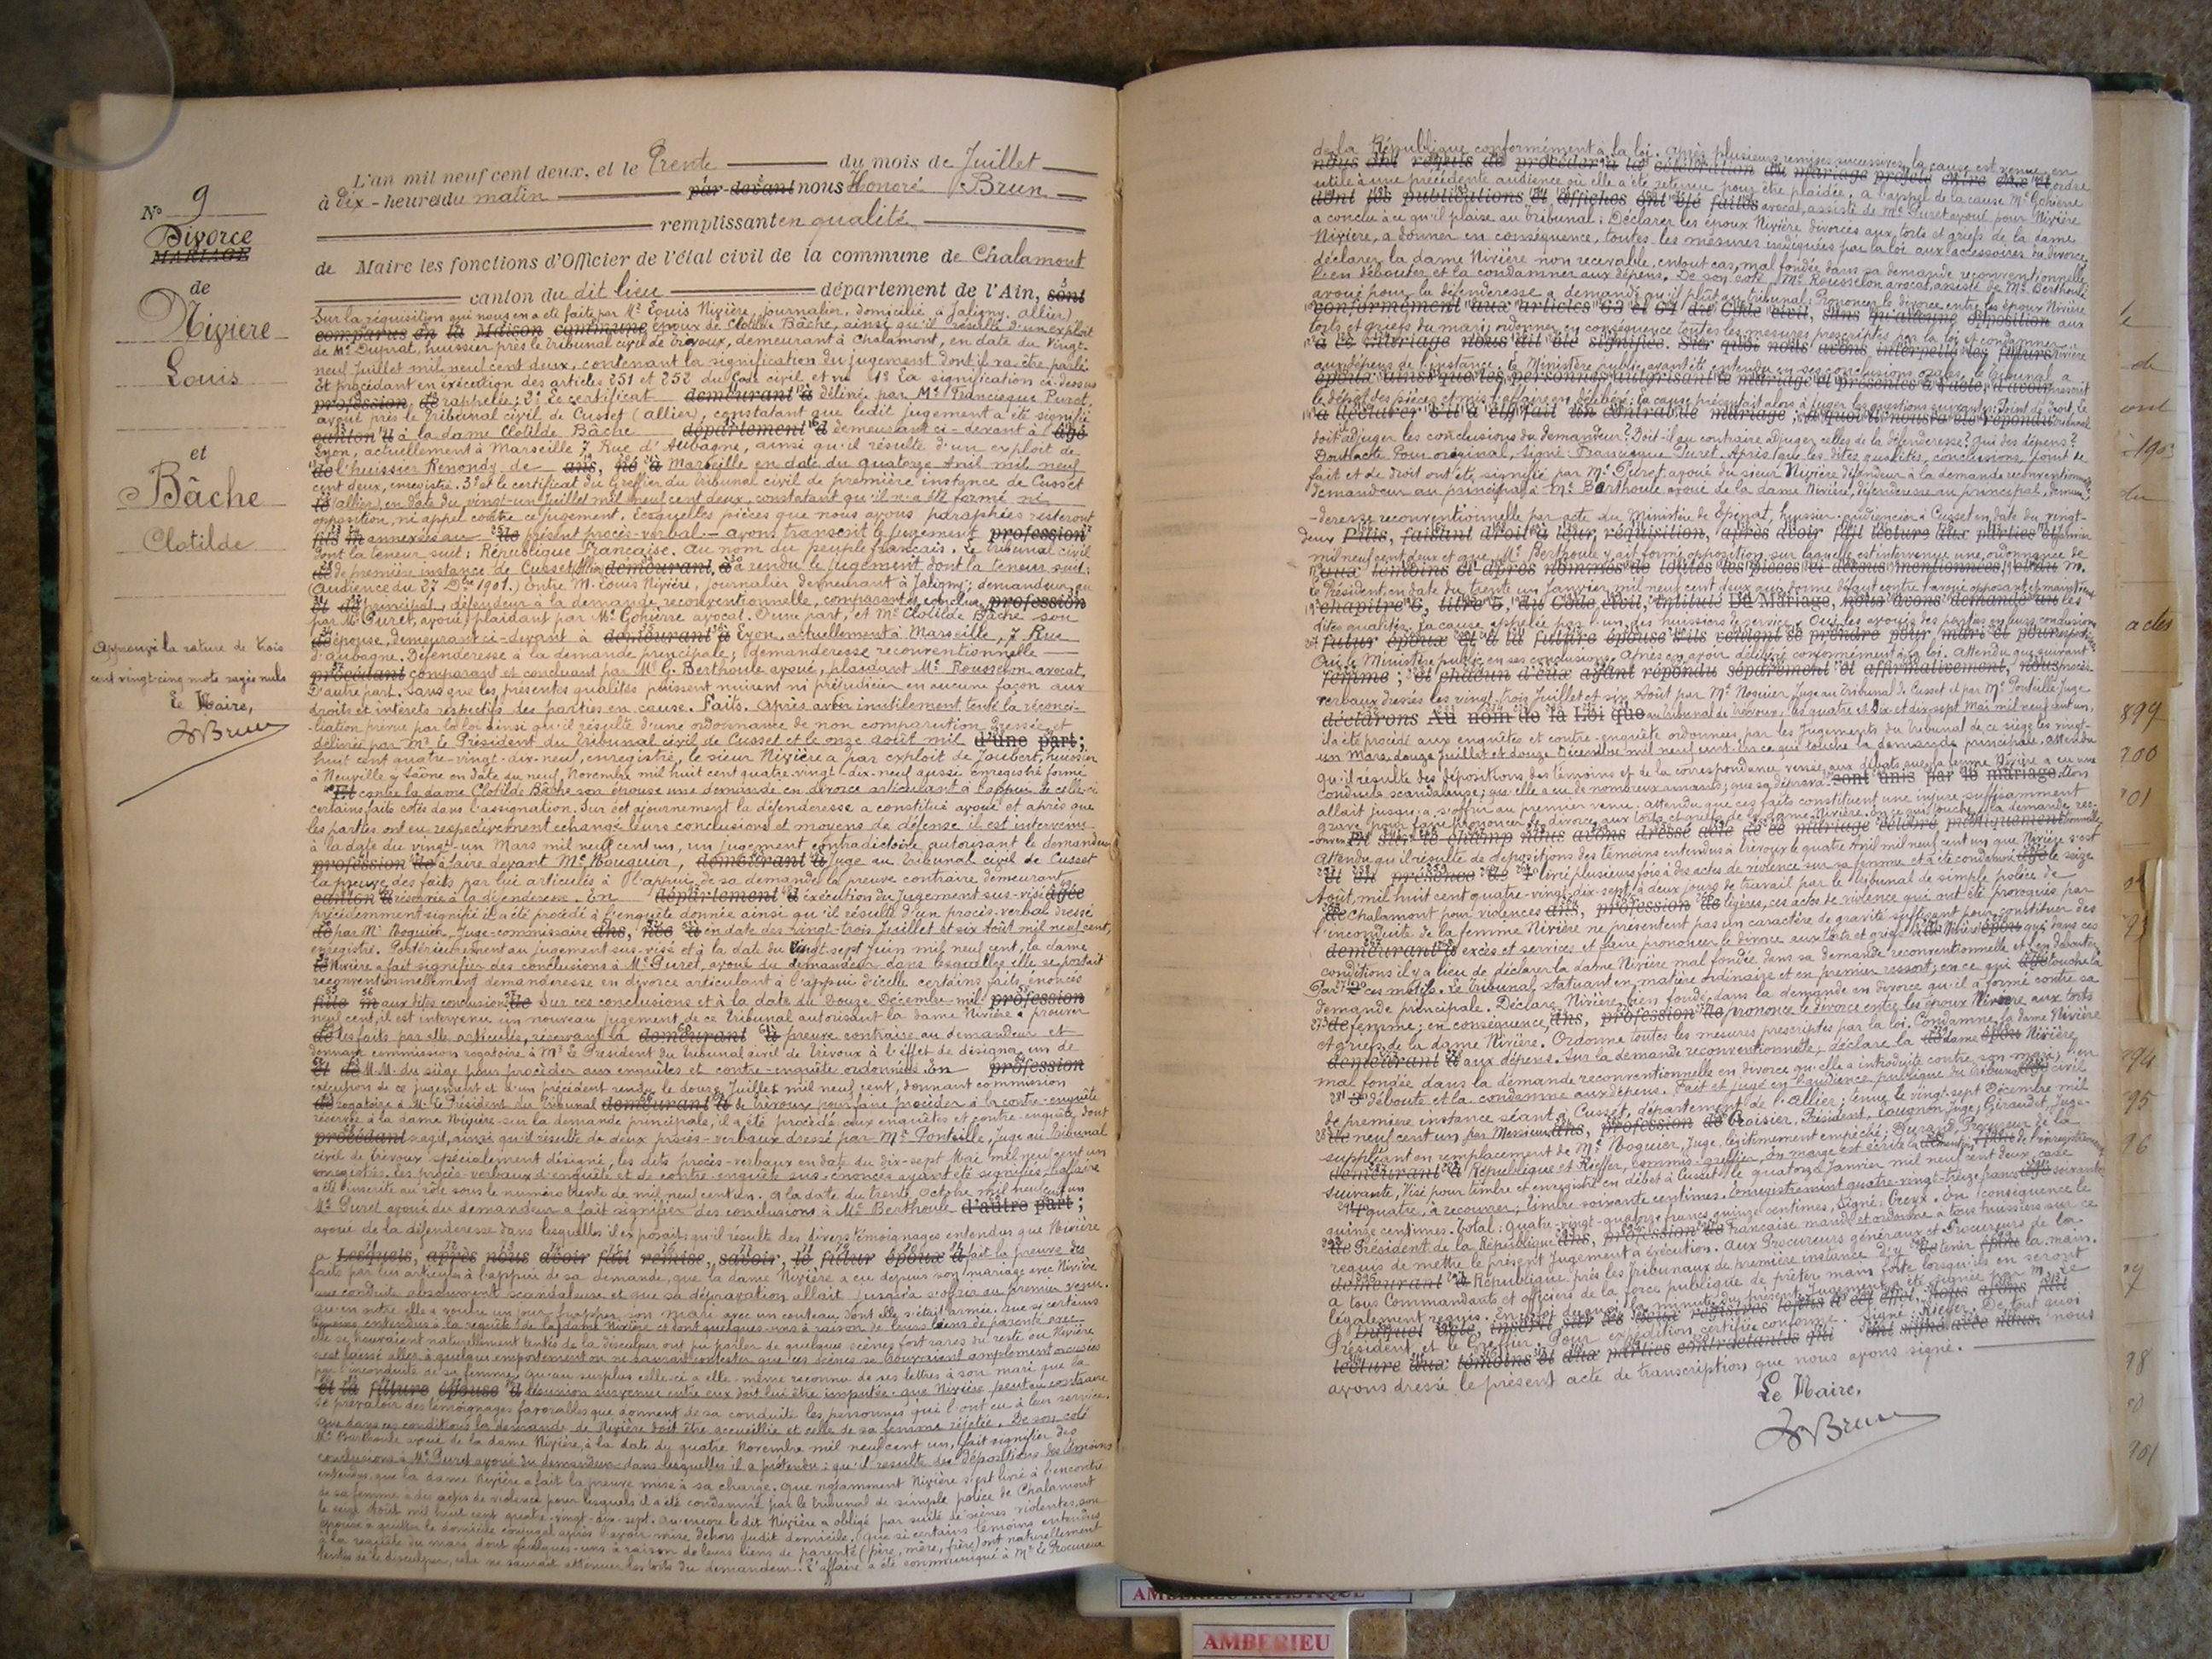 N° 9
Divorce
MARIAGE
de
Nivière
Louis
et
Bâche
Clotilde
Approuvé la rature de trois
cent vingt-cinq mots rayés nuls
Le Maire,
HBrun
L'an mil neuf cent deux, et le Trente du mois de Juillet
à Dix-heures du matin par devant nous Honoré Brun
remplissant en qualité
de Maire les fonctions d'Officier de l'état civil de la commune de Chalamont
canton du dit lieu département de l'Ain, sont
Sur la réquisition qui nous en a été faite par Mr Louis Nivière, journalier, domicilié à Jaligny, allier)
comparus en la Maison commune époux de Clotilde Bâche, ainsi qu'il résulte d'un exploit
de Me Duprat, huissier près le Tribunal civil de Trévoux, demeurant à Chalamont, en date du vingt-
neuf Juillet mil neuf cent deux, contenant la signification du jugement dont il va être parlé
Et procédant en exécution des articles 251 et 252 du Code civil et vu 1° La signification ci-dessus
profession de rappelée; 2° Le certificat demeurant à délivré par Me Francisque Puret,
avoué près le Tribunal civil de Cusset (allier), constatant que ledit jugement a été signifié
canton d à la dame Clotilde Bâche département d demeurant ci-devant à âgé
Lyon, actuellement à Marseille, 7 Rue d'Aubagne, ainsi qu'il résulte d'un exploit de
de l'huissier Renondy de ans, né à Marseille en date du quatorze Avril mil neuf
cent deux, enregistré. 3° et le certificat du Greffier du Tribunal civil de première instance de Cusset
le (allier) en date du vingt-un Juillet mil neuf cent deux, constatant qu'il n'a été formé ni
opposition, ni appel contre ce jugement. Lesquelles pièces que nous avons paraphées resteront
fils m annexées au de présent procès-verbal - avons transcrit le jugement profession
dont la teneur suit: République Française. Au nom du peuple français. Le Tribunal civil
de de première instance de Cusset demeurant, à a rendu le jugement dont la teneur suit:
(audience du 27 Dbre 1901.) Entre M. Louis Nivière, journalier demeurant à Jaligny; demandeur au
Et de principal, défendeur à la demande reconventionnelle, comparant et concluant profession
par Me Puret, avoué, plaidant par Me Gohierre avocat. D'une part, et Me Clotilde Bâche son
de épouse, demeurant ci-devant à demeurant à Lyon, actuellement à Marseille, 7 Rue
d'Aubagne. Défenderesse à la demande principale; demanderesse reconventionnelle
procédant comparant et concluant par Me G. Berthoule avoué, plaidant Me Rousselon avocat,
D'autre part. Sans que les présentes qualités puissent nuire ni préjudicier en aucune façon aux
droits et intérêts respectifs des parties en cause. Faits. Après avoir inutilement tenté la réconci-
-liation prévue par la loi ainsi qu'il résulte d'une ordonnance de non comparution dressée et
délivrée par Mr le Président du Tribunal civil de Cusset et le onze août mil d'une part;
huit cent quatre-vingt-dix-neuf, enregistré, le sieur Nivière a par exploit de Joubert, huissier
à Neuville s/ Saône en date du neuf Novembre mil huit cent quatre-vingt-dix-neuf aussi enregistré formé
Et contre la dame Clotilde Bâche son épouse une demande en divorce articulant à l'appui de celle-ci
certains faits cotés dans l'assignation. Sur cet ajournement la défenderesse a constitué avoué et après que
les parties ont eu respectivement échangé leurs conclusions et moyens de défense il est intervenu
à la date du vingt-un Mars mil neuf cent un, un jugement contradictoire autorisant le demandeur
profession de à faire devant Me Noguier, demeurant à Juge au Tribunal civil de Cusset
la preuve des faits par lui articulés à l'appui de sa demande, la preuve contraire demeurant
canton d réservée à la défenderesse. En département d exécution du Jugement sus-visé âgée
précédemment signifié il a été procédé à l'enquête donnée ainsi qu'il résulte d'un procès-verbal dressé
de par Mr Noguier, Juge-commissaire ans, née à en date des vingt-trois Juillet et six Août mil neuf cent,
enregistré. Postérieurement au jugement sus-visé et à la date du vingt-sept Juin mil neuf cent, la dame
le Nivière a fait signifier des conclusions à Me Puret, avoué du demandeur dans lesquelles elle se portait
reconventionnellement demanderesse en divorce articulant à l'appui d'icelle certains faits énoncés
fille m aux dites conclusions de Sur ces conclusions et à la date du Douze Décembre mil profession
neuf cent, il est intervenu un nouveau jugement de ce Tribunal autorisant la dame Nivière à prouver
de les faits par elle articulés, réservant la demeurant à preuve contraire au demandeur et
donnant commission rogatoire à Mr le Président du Tribunal civil de Trévoux à l'effet de désigner un de
Et de M.M. du siège pour procéder aux enquêtes et contre-enquête ordonnées. En profession
exécution de ce jugement et d'un précédent rendu le douze Juillet mil neuf cent, donnant commission
de rogatoire à Mr le Président du Tribunal demeurant à de Trévoux pour faire procéder à la contre-enquête
réservée à la dame Nivière sur la demande principale, il a été procédé aux enquêtes et contre-enquête dont
procédant s'agit, ainsi qu'il résulte de deux procès-verbaux dressé par Mr Ponteille, Juge au Tribunal
civil de Trévoux spécialement désigné, les dits procès-verbaux en date du dix-sept Mai mil neuf cent un
enregistrés. Les procès-verbaux d'enquête et de contre-enquête sus-énoncés ayant été signifiés l'affaire
a été inscrite au rôle sous le numéro trente de mil neuf cent un. A la date du trente Octobre mil neuf cent un
Me Puret avoué du demandeur a fait signifier des conclusions à Me Berthoule d'autre part;
avoué de la défenderesse dans lesquelles il exposait qu'il résulte des divers témoignages entendus que Nivière
a Lesquels, après nous avoir fait remise, savoir, le futur époux d fait la preuve des
faits par lui articulés à l'appui de sa demande, que la dame Nivière a eu depuis son mariage avec Nivière
une conduite absolument scandaleuse et que sa dépravation allait jusqu'à s'offrir au premier venu.
qu'en outre elle a voulu un jour frapper son mari avec un couteau dont elle s'était armée. Que si certains
témoins entendus à la requête de la dame Nivière et dont quelques-uns à raison de leurs liens de parenté avec
elle se trouvaient naturellement tentés de la disculper ont pu parler de quelques scènes fort rares du reste où Nivière
s'est laissé aller à quelque emportement on ne saurait contester que ces scènes se trouvaient amplement excusées
par l'inconduite de sa femme; qu'au surplus celle-ci a elle-même reconnu de ses lettres à son mari que la
et la future épouse d désunion survenue entre eux doit lui être imputée. que Nivière peut au contraire
se prévaloir des témoignages favorables que donnent de sa conduite les personnes qui l'ont eu à leur service.
que dans ces conditions la demande de Nivière doit être accueillie et celle de sa femme rejetée. De son côté
Me Berthoule avoué de la dame Nivière, à la date du quatre Novembre mil neuf cent un, fait signifier des
conclusions à Me Puret avoué du demandeur dans lesquelles il a prétendu: qu'il résulte des dépositions des témoins
entendus que la dame Nivière a fait la preuve mise à sa charge. Que notamment Nivière s'est livré à l'encontre
de sa femme à des actes de violence pour lesquels il a été condamné par le tribunal de simple police de Chalamont
le seize Août mil huit cent quatre-vingt-dix-sept. qu'encore le dit Nivière a obligé par suite de scènes violentes, son
épouse à quitter le domicile conjugal après l'avoir mise dehors dudit domicile. Que si certains témoins entendus
à la requête du mari dont quelques-uns à raison de leurs liens de parenté (père, mère, frère) ont naturellement
tentés de le disculper, cela ne saurait atténuer les torts du demandeur. L'affaire a été communiqué à Mr le Procureur
de la République conformément à la loi. Après plusieurs remises successives, la cause est venue en
nous ont requis de procéder à la célébration du mariage projeté entre eux et ordre
utile à une précédente audience où elle a été retenue pour être plaidée; à l'appel de la cause Me Gohierre
dont les publications et affiches ont été faites avocat, assisté de Me Puret avoué pour Nivière
a conclu à ce qu'il plaise au Tribunal: Déclarer les époux Nivière divorcés aux torts et griefs de la dame
Nivière, a donner en conséquence, toutes les mesures indiquées par la loi aux accessoires du divorce,
déclarer la dame Nivière non recevable, en tout cas, mal fondée dans sa demande reconventionnelle,
l'en débouter et la condamner aux dépens. De son côté, Me Rousselon avocat, assisté de Me Berthoule
avoué pour la défenderesse a demandé qu'il plût au tribunal: Prononcer le divorce entre les époux Nivière
conformément aux articles 63 et 64 du Code civil, sans qu'aucune opposition aux
torts et griefs du mari; ordonner en conséquence toutes les mesures prescriptes par la loi et condamner
à ce mariage nous ait été signifiée. Sur quoi nous avons interpellé les futurs Nivière
aux dépens de l'instance. Le Ministère public ayant été entendu en ses conclusions orales, le Tribunal a
époux ainsi que les personnes autorisant le mariage et présentes à l'acte, d'avoir prescrit
le dépôt des pièces et mis l'affaire en délibéré; la cause présentait alors à juger les questions suivantes: Point de Droit, Le
à déclarer s'il a été fait un contrat de mariage; à quoi ils nous ont répondu Tribunal
doit adjuger les conclusions du demandeur? Doit-il au contraire adjuger celles de la défenderesse? Qui des dépens?
Dont acte Pour original, Signé: Francisque Puret. Après que les dites qualités, conclusions, point de
fait et de droit ont été signifié par Me Puret, avoué du sieur Nivière défendeur à la demande reconventionnelle
demandeur au principal à Me Berthoule avoué de la dame Nivière, défenderesse au principal, deman-
-deresse reconventionnelle par acte du Ministère de Epenat, huissier-audiencier à Cusset en date du vingt-
deux Puis, faisant droit à leur réquisition, après avoir fait lecture aux parties et Janvier
mil neuf cent deux et que Me Berthoule y ait formé opposition sur laquelle est intervenue une ordonnance de
aux témoins ci-après nommés de toutes les pièces ci-dessus mentionnées et du M.
le Président en date du trente un Janvier mil neuf cent deux qui donne défaut contre l'avoué opposant et maintient
chapitre 6, titre 5, du Code civil, intitulé Du Mariage, nous avons demandé au les
dites qualités. La cause appelée par l'un des huissiers de service. Ouï les avoués des parties en leurs conclusions
futur époux et à la future épouse s'ils veulent se prendre pour mari et pour
Ouï le Ministère public en ses conclusions. Après en avoir délibéré conformément à la loi. Attendu que suivant
femme; et chacun d'eux ayant répondu séparément et affirmativement, nous procès-
verbaux dressés les vingt-trois Juillet et six Août par Mr Noguier Juge au Tribunal de Cusset et par Mr Ponteille Juge
déclarons au nom de la Loi que au Tribunal de Trévoux, les quatre et dix et dix-sept Mai mil neuf cent un,
il a été procédé aux enquêtes et contre-enquête ordonnées par les Jugements du Tribunal de ce siège les vingt-
un Mars, douze Juillet et douze Décembre mil neuf cent. En ce que touche la demande principale. Attendu
qu'il résulte des dépositions des témoins et de la correspondance versée aux débats que la femme Nivière a eu une
conduite scandaleuse; que elle a eu de nombreux amants; que sa déprava- sont unis par le mariage. tion
allait jusqu'à s'offrir au premier venu. Attendu que ces faits constituent une injure suffisamment
grave pour faire prononcer le divorce aux torts et griefs de la dame Nivière. En ce qui touche la demande rec-
-onven Et sur-le-champ nous avons dressé acte de ce mariage célébré publiquement tionnelle.
Attendu qu'il résulte de dépositions des témoins entendus à Trévoux le quatre Mai mil neuf cent un que Nivière s'est
et en présence de 1° livré plusieurs fois à des actes de violence sur sa femme et a été condamné âgé le seize
Août, mil huit cent quatre-vingt-dix-sept à deux jours de travail par le Tribunal de simple police de
de Chalamont pour violences ans, profession de légères, ces actes de violence qui ont été provoqués par
l'inconduite de la femme Nivière ne présentent pas un caractère de gravité suffisant pour constituer des
demeurant à excès et sévices et faire prononcer le divorce aux torts et griefs de Nivière époux que dans ces
conditions il y a lieu de déclarer la dame Nivière mal fondée dans sa demande reconventionnelle et l'en débouter.
Par 2° ces motifs. Le Tribunal, statuant en matière ordinaire et en premier ressort; en ce qui âgé touche la
demande principale. Déclare Nivière bien fondé dans la demande en divorce qu'il a formé contre sa
de femme; en conséquence, ans, profession de prononce le divorce entre les époux Nivière aux torts
et griefs de la dame Nivière. Ordonne toutes les mesures prescriptes par la loi. Condamne la dame Nivière
demeurant à aux dépens. Sur la demande reconventionnelle; déclare la dame époux Nivière
mal fondée dans la demande reconventionnelle en divorce qu'elle a introduite contre son mari; l'en
3° déboute et la condamne aux dépens. Fait et jugé en l'audience publique du Tribunal âgé civil
de première instance séant à Cusset, département de l'Allier; tenue le vingt-sept Décembre mil
de neuf cent un par Messieurs ans, profession de Loisier, Président, Lougnon Juge; Géraudet, Juge-
suppléant en remplacement de Mr Noguier, Juge, légitimement empêché; Durand, Procureur de la
demeurant à République et Rieffer, commis-greffier. En marge est écrite la
suivante, Visé pour timbre et enregistré en débet à Cusset le quatorze Janvier mil neuf cent deux, case
4° quatre, à recouvrer; timbre soixante centimes. Enregistrement quatre-vingt-treize francs âgé soixante-
quinze centimes. Total: quatre-vingt-quatorze francs quinze centimes, Signé: Creux. En conséquence le
de Président de la République ans, profession de Française mande et ordonne à tous huissiers sur ce
requis de mettre le présent Jugement à exécution. Aux Procureurs généraux et Procureurs de la
demeurant à République près les Tribunaux de première instance d'y de tenir époux la main.
A tous Commandants et officiers de la force publique de prêter main forte lorsqu'ils en seront
légalement requis. En foi de quoi la minute du présent Jugement a été signée par M. Le
Duquel acte, inscrit sur les deux registres tenus à cet effet, nous avons fait
Président et le Greffier. Pour expédition certifiée conforme. Signé: Rieffer. De tout quoi
lecture aux témoins et aux parties contractantes qui ont signé avec nous. nous
avons dressé le présent acte de transcription que nous avons signé.
Le Maire,
HBrun
le
de
ont
1903
du
actes
899
900
901
94
95
96
97
98
901
AMBERIEU ARTISTIQUE
AMBERIEU